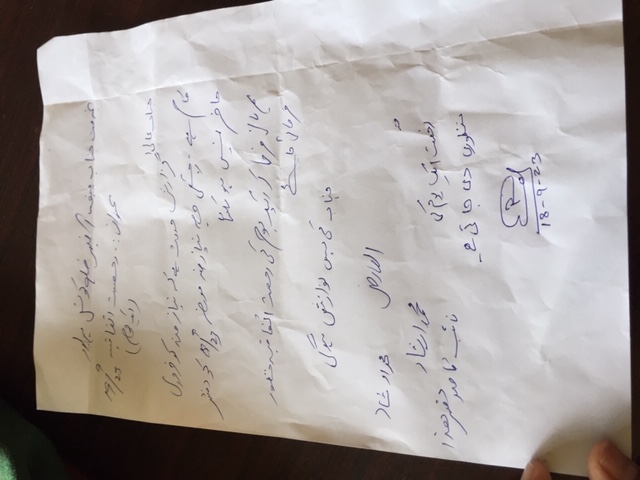 بخدمت جناب چیف آفیسر ضلع کونسل
عنوان:۔ رخصت اتفاقیہ 19/9/23
(ایک یوم)
جناب عالی!
گزارش خدمت ہے کہ نیاز مند کو ضروری
کام ہے۔ جسکی وجہ نیاز مند مورخہ 19/9/23 کو دفتر
حاضر نہیں ہو سکتا
مہربانی فرما کر ایک یوم کی رخصت اتفاقیہ منظور
فرمائی جائے
جناب کی بس نوازش ہوگی
العارض
محمد ارشاد
محمد ارشاد
نائب قاصد دفتر ھذا
رخصت ایک یوم کی
منظوری دی جاتی ہے۔
18-9-23